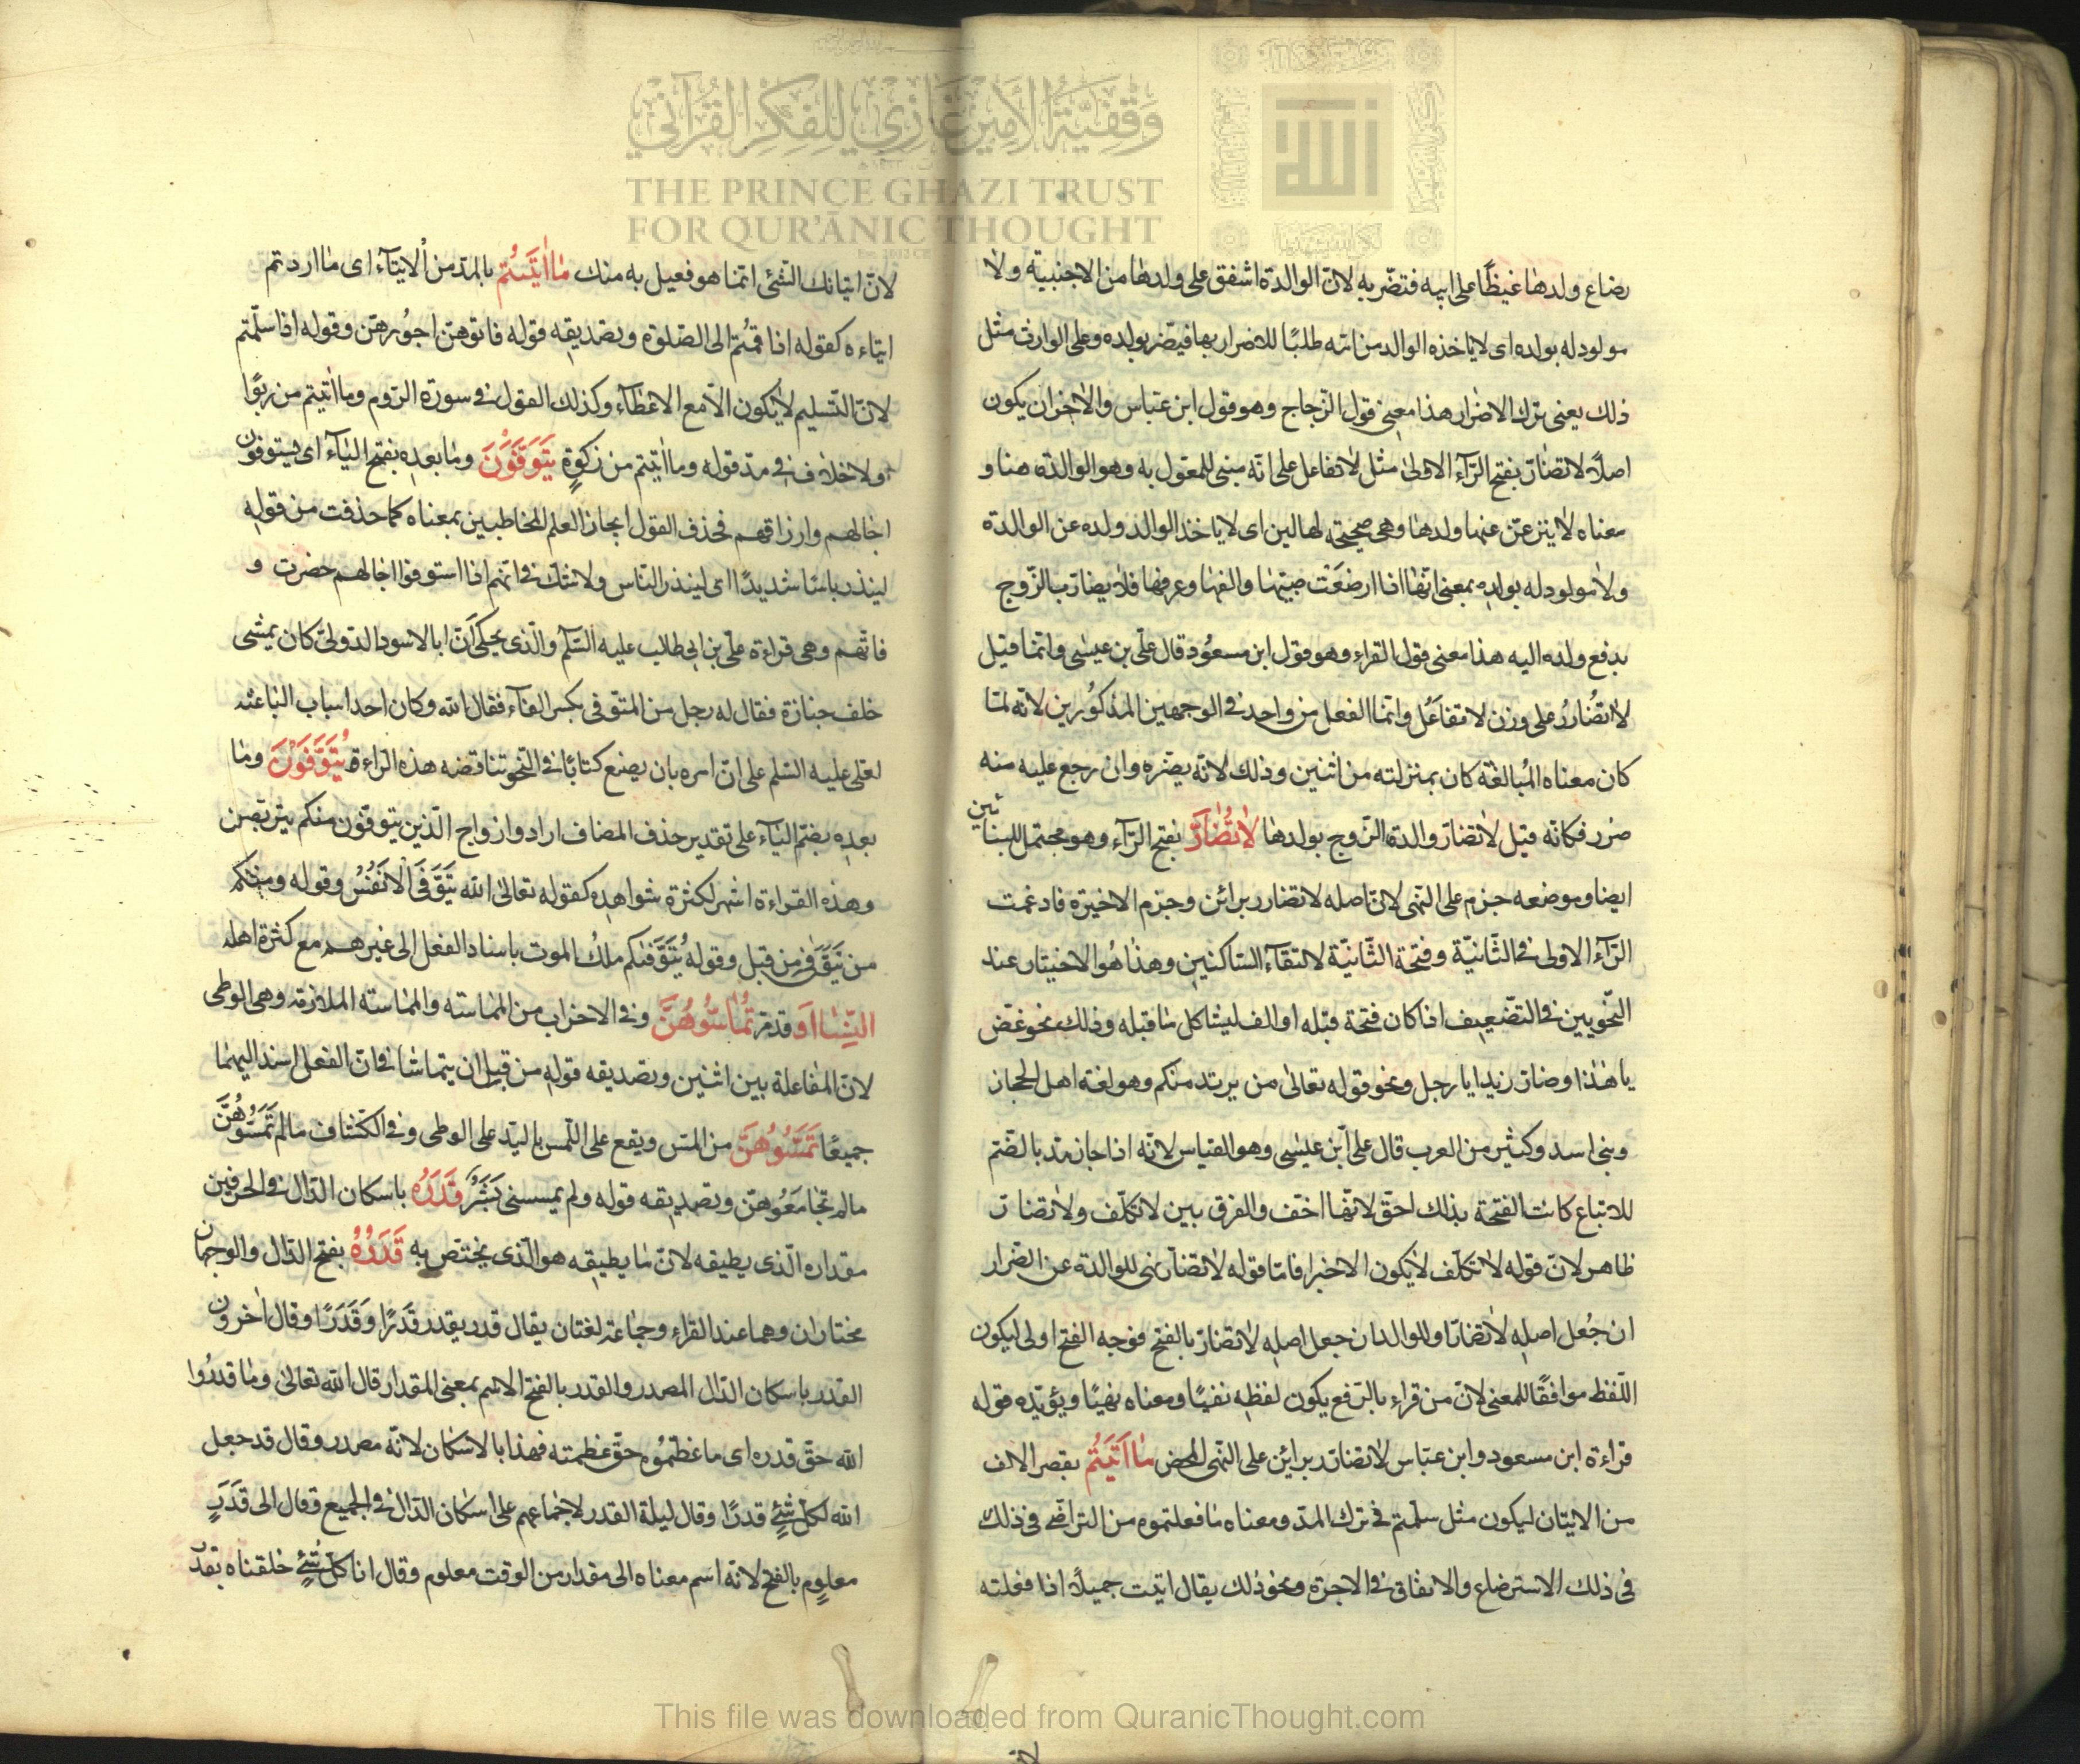 وقفية الأمير غازي للفكر القرآني
THE PRINCE GHAZI TRUST
FOR QUR'ĀNIC THOUGHT
رضاع ولدها غيظًا على ابيه فتضرّ به لانّ الوالدة اشفق على ولدها من الاجنبيّة ولا
مولود له بولده اى لا ياخذه الوالد من امّه طلبًا للاضرار بها فيضرّ بولده وعلى الوارث مثل
ذلك يعنى ترك الاضرار هذا معنى قول الزّجاج وهو قول ابن عبّاس والاخر ان يكون
اصلًا لا تضارّ بفتح الرّآء الاولى مثل لا تفاعل على انّه مبنى للمفعول به وهو الوالدة هنا و
معناه لا ينزعنّ عنها ولدها وهى صحيحة لها لبن اى لا ياخذ الوالد ولده عن الوالدة
ولا مولود له بولده بمعنى انّها اذا ارضعت صبيّها والفها وعرفها فلا يضارّ بالزّوج
بدفع ولده اليه هذا معنى قول الفراء وهو قول ابن مسعُود قال علّى بن عيسٰى وانّما قيل
لا تُضاررُ على وزن لا تفاعَلُ وانّما الفعل من واحد فى الوجهين المذكورين لانّه لمّا
كان معناه المُبالغة كان بمنزلته من اثنين وذلك لانّه يضرّه وان رجع عليه منه
ضرر فكانّه قيل لا تضارّ والدة الزّوج بولدها لٰا تُضٰارَّ بفتح الرّآء وهو محتمل للبنائين
ايضا وموضعه جزم على النّهى لانّ اصله لا تضارر برائن وجزم الاخيرة فادغمت
الرّآء الاولى فى الثّانيّة وفتحة الثّانيّة لالتقآء السّاكنين وهذا هُو الاختيار عند
النّحويين فى التضّعيف اذا كان فتحة قبله او الف ليشاكل ما قبله وذلك نحو عضّ
يا هٰذا وضارّ زيدا يا رجل ونحو قوله تعالىٰ من يرتد منكم وهو لغة اهل الحجاز
وبنى اسد وكثير من العرب قال على ابن عليٰسى وهو القياس لانّه اذا جاز مدّ بالضّم
للاتباع كانت الفتحة بذلك احقّ لانّها اخفّ والفرق بين لا تكلّف ولا تضارّ
ظاهر لانّ قوله لا تكلّف لا يكون الا خبرا فامّا قوله لا تضارّ نهى للوالدة عن الضرار
ان جُعل اصله لا تضارّ او للوالد ان جعل اصله لا تضارّ بالفتح فوجه الفتح اولى ليكون
اللّفظ موافقًا للمعنى لانّ من قراء بالرّفع يكون لفظه نفيًا ومعناه نهيًا ويؤيّده قوله
قراءة ابن مسعود وابن عبّاس لا تضارّر برائين على النّهى المحض مٰا اَتَيْتُمْ بقصر الالف
من الاتيان ليكون مثل سلّمتم فى ترك المدّ ومعناه ما فعلتموه من التراضى فى ذلك
فى ذلك الاسترضاع والاتفاق فى الاجرة ونحو ذلك يقال اتيت جميلًا اذا فعلته
لانّ اتيانك الشّئى انّما هو فعيل به منك مٰا اٰتَيْتُمْ بالمدّ من الايتآء اى ما اردتم
ايتاءه كقوله اذا قمتُم الى الصّلوة وتصديقه قوله فاتوهنّ اجُورهنّ وقوله اذا سلّمتم
لانّ التّسليم لا يكون الّا مع الاعطآء وكذلك القول فى سورة الرّوم وما اٰتيتم من ربًوا
ولا خلاف فى مدّ قوله وما اٰتيتم من زكوةٍ يَتَوَفَّوْنَ وما بعده بفتح اليآء اى يستوفون
اجالهم وارزاقهم فحذف القول ايجازا لعلم المخاطبين بمعناه كما حذفت من قوله
لينذر باسًا شديدًا اى لينذر النّاس ولا شكّ فى انّهم اذا استوفوا اجالهم حضرت و
فاتهم وهى قراءة علّى بن ابى طالب عليه السّلم والّذى يحكى انّ ابا الاسود الدّولى كان يمشى
خلف جنازة فقال له رجل من المتوّفى بكسر الفآء فقال الله وكان احد اسباب الباعثه
لعلى عليه السّلم على ان امره بان يضع كتابًا فى النّحو تناقضه هذه القراءة يُتَوَفَّوْنَ وما
بعده بضّم اليآء على تقدير حذف المضاف اراد وازواج الّذين يتوفّون منكم يتربّصن
وهذه القراءة اشهر لكثرة شواهده كقوله تعالىٰ الله يَتَوَفَّى الْاَنْفُسَ وقوله ومنكم
من يُتَوَفّٰى من قبل وقوله يُتَوَفّٰكم ملك الموت باسناد الفعل الى غيرهم مع كثرة اهله
النِّسٰا اَو قدمر تُمٰاسُّوهُنَّ وفى الاحزاب من المماسّه والمماسته الملازقه وهى الوطى
لانّ المفاعلة بين اثنين وتصديقه قوله من قبل ان يتماسّا فانّ الفعل اسند اليهما
جميعًا تَمَسُّوهُنَّ من المسّ ويقع على اللّمس باليد على الوطى وفى الكشّاف ما لم تَمَسُّوهُنَّ
ما لم تجامعُوهنّ وتصديقه قوله ولم يمسسنى بَشَرٌ قَدْرُهُ باسكان الدّال فى الحرفين
مقداره الّذى يطيقه لانّ ما يطيقه هو الّذى يختصّ به قَدَرُهُ بفتح الدّال والوجهان
مختاران وهما عند القراء وجماعة لغتان يقال قدر يقدر قَدْرًا وَقَدَرًا وقال اٰخرون
القدر باسكان الدّال المصدر والقدر بالفتح الاسم بمعنى المقدار قال الله تعالىٰ وما قدرُوا
الله حقّ قدره اى ما عظمّوُه حقّ عظمته فهذا بالاسكان لانّه مصدر وقال قد جعل
الله لكلّ شئٍ قدرًا وقال ليلة القدر لاجماعهم على اسكان الدّال فى الجميع وقال الى قَدَرٍ
معلومٍ بالفتح لانّه اسم معناه الى مقدار من الوقت معلوم وقال انا كلّ شئٍ خلقناه بقدر
This file was downloaded from QuranicThought.com